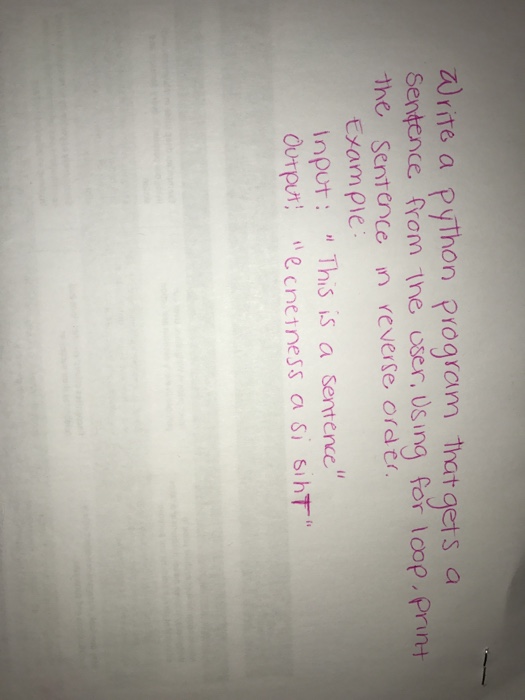 Write a python program that gets a
sentence from the user. Using for loop, print
the sentence in reverse order.
Example:
Input: "This is a sentence"
Output: "ecnetness a si sihT"